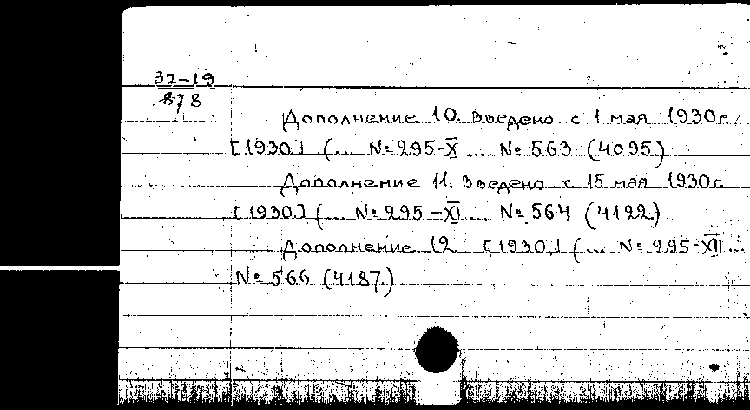 37-19
878
Дополнение 10. Введено с 1 мая 1930 г.
[1930.] (... № 295-X ... № 563 (4095.)
Дополнение 11. Введено с 15 мая 1930 г.
[1930.] (... № 295-XI ... № 564 (4122.)
Дополнение 12. [1930.] (... № 295-XII ...
№ 566 (4187.)